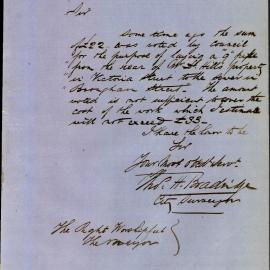 Sir
Some time ago the sum
of £22 was voted by Council
for the purpose of laying a 9" pipe
from the rear of Hills property
in Victoria Street to the sewer in
Brougham Street. The amount
voted is not sufficient to cover the
cost of the work which I estimate
will not exceed £33.
I have the honor to be
Sir
Your most obed. Servt.
Thos. H. Bradridge
City Surveyor
The Right Worshipful
The Mayor